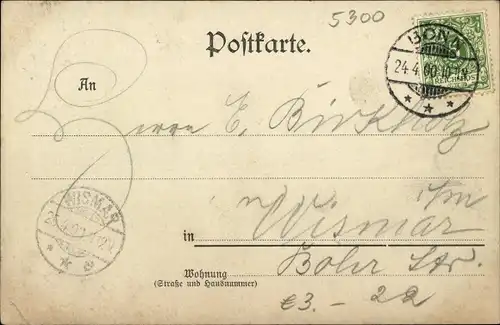 5300
Postkarte.
BONN
24.4.00.10-11V
REICHSPOST
An
Herrn E. Birkholz
WISMAR
i/m
Wismar
in
Bohr Str.
Wohnung
(Straße und Hausnummer)
€3.- 22